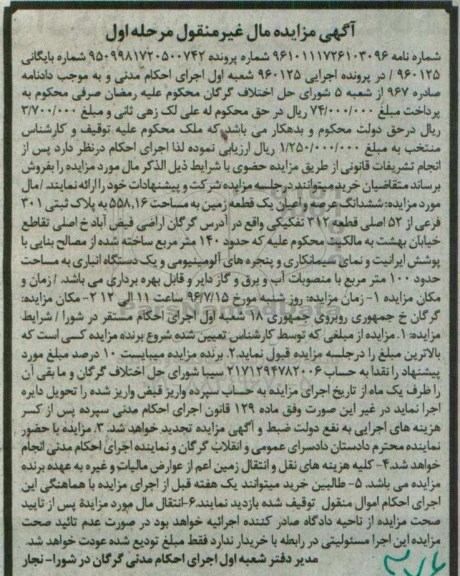 آگهی مزایده مال غیرمنقول مرحله اول
شماره نامه ۹۶۱۰۱۱۱۷۲۶۱۰۳۰۹۶ شماره پرونده ۹۵۰۹۹۸۱۷۲۰۵۰۰۷۴۲ شماره بایگانی
۹۶۰۱۲۵ / در پرونده اجرایی ۹۶۰۱۲۵ شعبه اول اجرای احکام مدنی و به موجب دادنامه
صادره ۹۶۷ از شعبه ۵ شورای حل اختلاف گرگان محکوم علیه رمضان صرفی محکوم به
پرداخت مبلغ ۷۴/۰۰۰/۰۰۰ ریال در حق محکوم له علی لک زهی ثانی و مبلغ ۳/۷۰۰/۰۰۰
ریال درحق دولت محکوم و بدهکار می باشد که ملک محکوم علیه توقیف و کارشناس
منتخب به مبلغ ۱/۲۵۰/۰۰۰/۰۰۰ ریال ارزیابی نموده لذا اجرای احکام درنظر دارد پس از
انجام تشریفات قانونی از طریق مزایده حضوی با شرایط ذیل الذکر مال مورد مزایده را بفروش
برساند متقاضیان خرید میتوانند درجلسه مزایده شرکت و پیشنهادات خود را ارائه نمایند. /مال
مورد مزایده: ششدانگ عرصه و اعیان یک قطعه زمین به مساحت ۵۵۸,۱۶ به پلاک ثبتی ۳۰۱
فرعی از ۵۲ اصلی قطعه ۳۱۲ تفکیکی واقع در آدرس گرگان اراضی فیض آباد خ اصلی تقاطع
خیابان بهشت به مالکیت محکوم علیه که حدود ۱۴۰ متر مربع ساخته شده از مصالح بنایی با
پوشش ایرانیت و نمای سیمانکاری و پنجره های آلومینیومی و یک دستگاه انباری به مساحت
حدود ۱۰۰ متر مربع با منصوبات آب و برق و گاز دایر و قابل بهره برداری می باشد. / زمان و
مکان مزایده ۱- زمان مزایده: روز شنبه مورخ ۹۶/۷/۱۵ ساعت ۱۱ الی ۱۲ ۲- مکان مزایده:
گرگان خ جمهوری روبروی جمهوری ۱۸ شعبه اول اجرای احکام مستقر در شورا / شرایط
مزایده: ۱. مزایده از مبلغی که توسط کارشناس تعیین شده شروع برنده مزایده کسی است که
بالاترین مبلغ را درجلسه مزایده قبول نماید.۲. برنده مزایده میبایست ۱۰ درصد مبلغ مورد
پیشنهاد را نقدا به حساب ۲۱۷۱۲۹۴۷۸۲۰۰۶ سیبا شورای حل اختلاف گرگان و ما بقی آن
را ظرف یک ماه از تاریخ اجرای مزایده به حساب سپرده واریز قبض واریز شده را تحویل دایره
اجرا نماید در غیر این صورت وفق ماده ۱۲۹ قانون اجرای احکام مدنی سپرده پس از کسر
هزینه های اجرایی به نفع دولت ضبط و آگهی مزایده تجدید خواهد شد. ۳. مزایده با حضور
نماینده محترم دادستان دادسرای عمومی و انقلاب گرگان و نماینده اجرای احکام مدنی انجام
خواهد شد.۴- کلیه هزینه های نقل و انتقال زمین اعم از عوارض مالیات و غیره به عهده برنده
مزایده می باشد. ۵- طالبین خرید میتوانند یک هفته قبل از اجرای مزایده با هماهنگی این
اجرای احکام اموال منقول توقیف شده بازدید نمایند.۶-انتقال مال مورد مزایدهٔ پس از تایید
صحت مزایده از ناحیه دادگاه صادر کننده اجرائیه خواهد بود در صورت عدم تائید صحت
مزایده این اجرا مسئولیتی در رابطه با خریدار ندارد فقط مبلغ تودیع شده عودت خواهد شد.
مدیر دفتر شعبه اول اجرای احکام مدنی گرگان در شورا- نجار